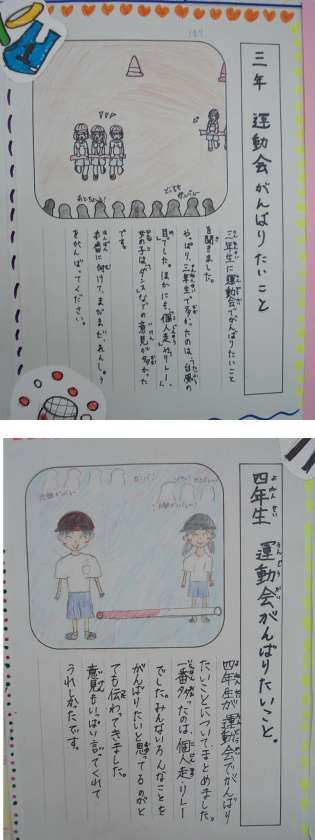 三年 運動会がんばりたいこと
三年生に運動会でがんばりたいこと
を聞きました。
やっぱり、三年生で多かったのは、台風の
目でした。ほかにも、個人走やリレー、
女の子は、ダンスなどの意見が多かった
です。
本番に向けて、まだまだ、れんしゅう
をがんばってください。
四年生 運動会がんばりたいこと。
四年生が運動会でがんばり
たいことについてまとめました。
一番多かったのは、個人走やリレー
でした。みんないろんなことを
がんばりたいと思ってるのがと
ても伝わってきました。
意見もいっぱい言ってくれて
うれしかったです。